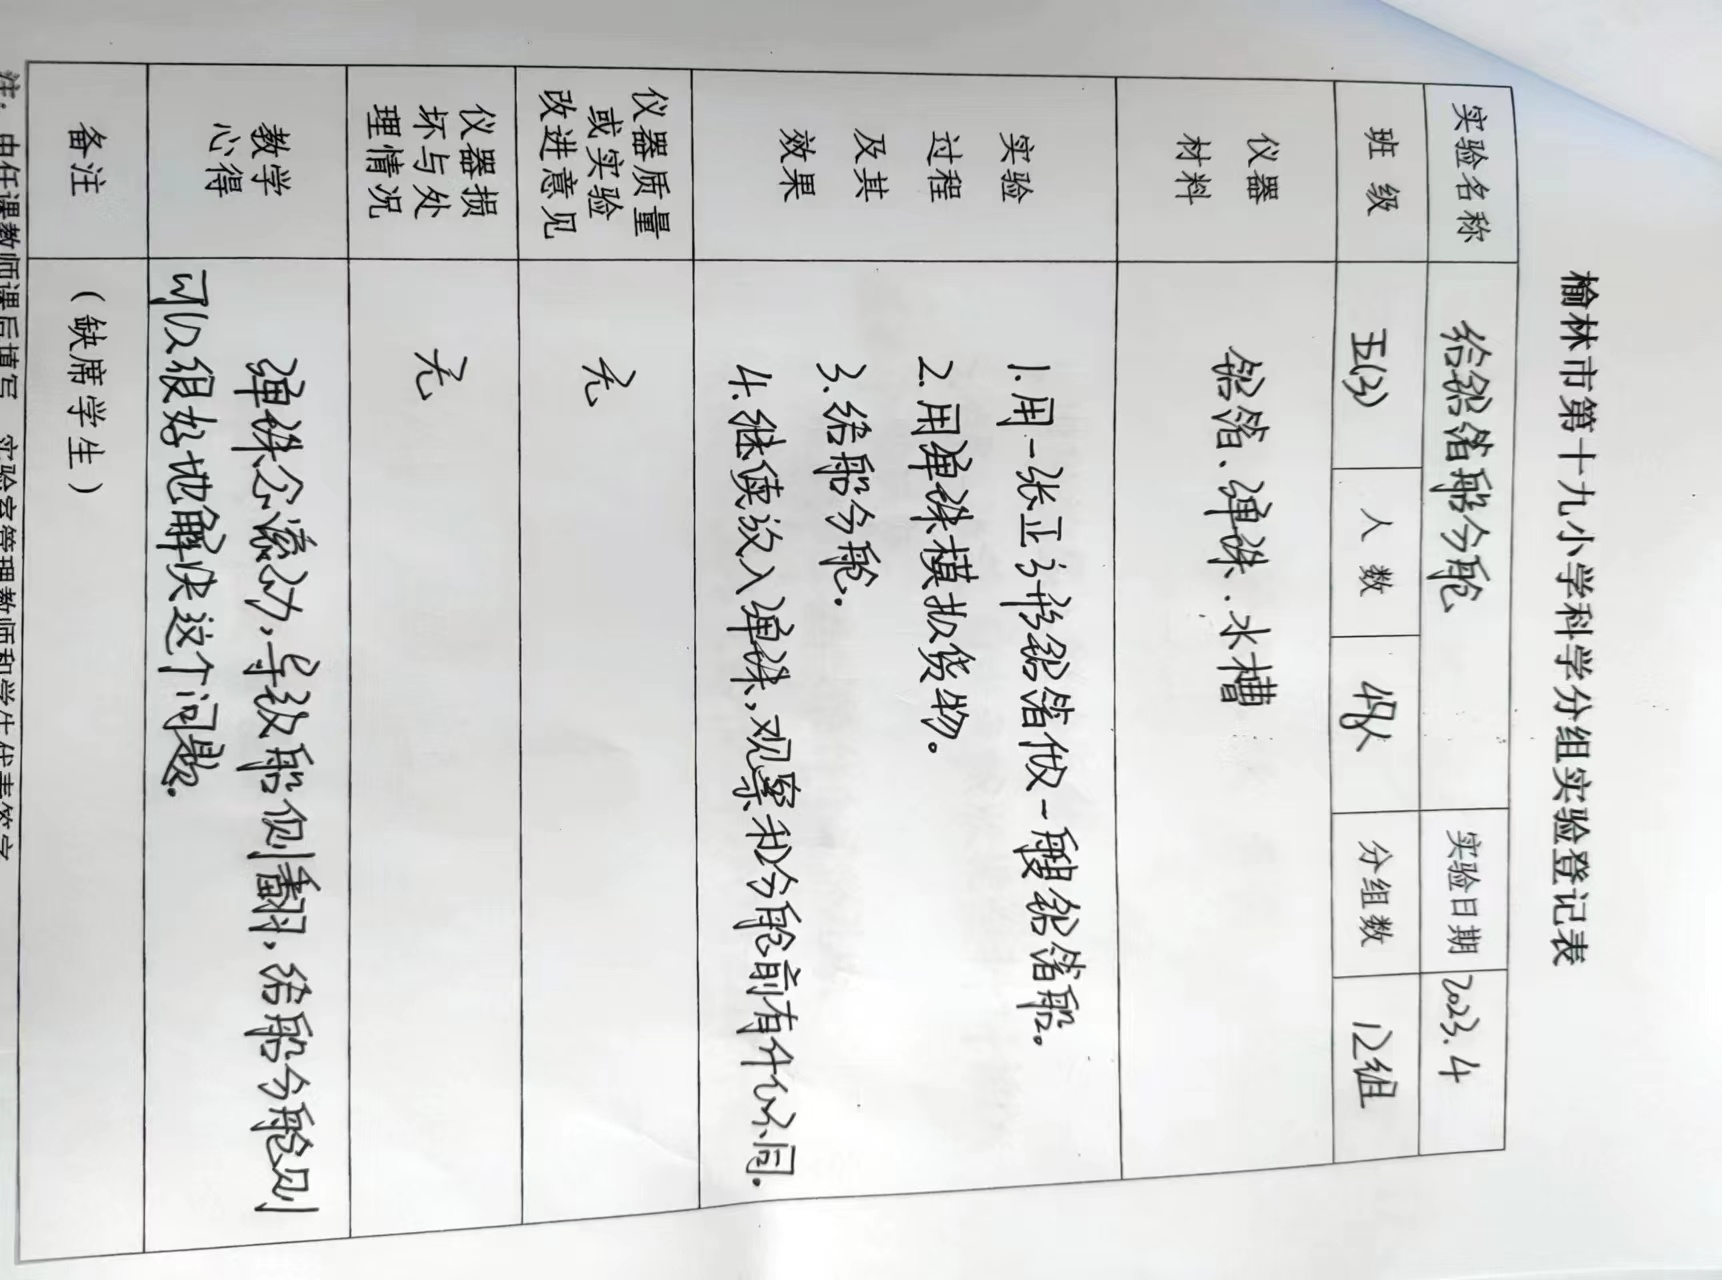 榆林市第十九小学科学分组实验登记表
实验名称 给铝箔船分舱 实验日期 2023.4
班级 五(3) 人数 48人 分组数 12组
仪器
材料
铝箔、弹珠、水槽
实验
过程
及其
效果
1.用一张正方形铝箔做一艘铝箔船。
2.用弹珠模拟货物。
3.给船分舱。
4.继续放入弹珠,观察和分舱前有什么不同。
仪器质量
或实验
改进意见
无
仪器损
坏与处
理情况
无
教学
心得
弹珠会滚动,导致船侧翻,给船分舱则
可以很好地解决这个问题。
备注 (缺席学生)
注:由任课教师课后填写 实验室管理教师和学生代表签字